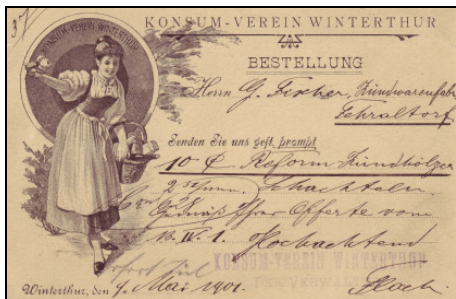 37
KONSUM-VEREIN WINTERTHUR
KONSUM-VEREIN WINTERTHUR
BESTELLUNG
Herrn G. Fischer, Zündwarenfabr
Fehraltorf
Senden Sie uns gefl. prompt
10 ₵ Reform Zündhölzer
Schachteln
Gemäß Ihrer Offerte vom
13. IV. 1. Hochachtend
KONSUM-VEREIN WINTERTHUR
DER VERWALTER
Winterthur, den 9. Mai 1901.